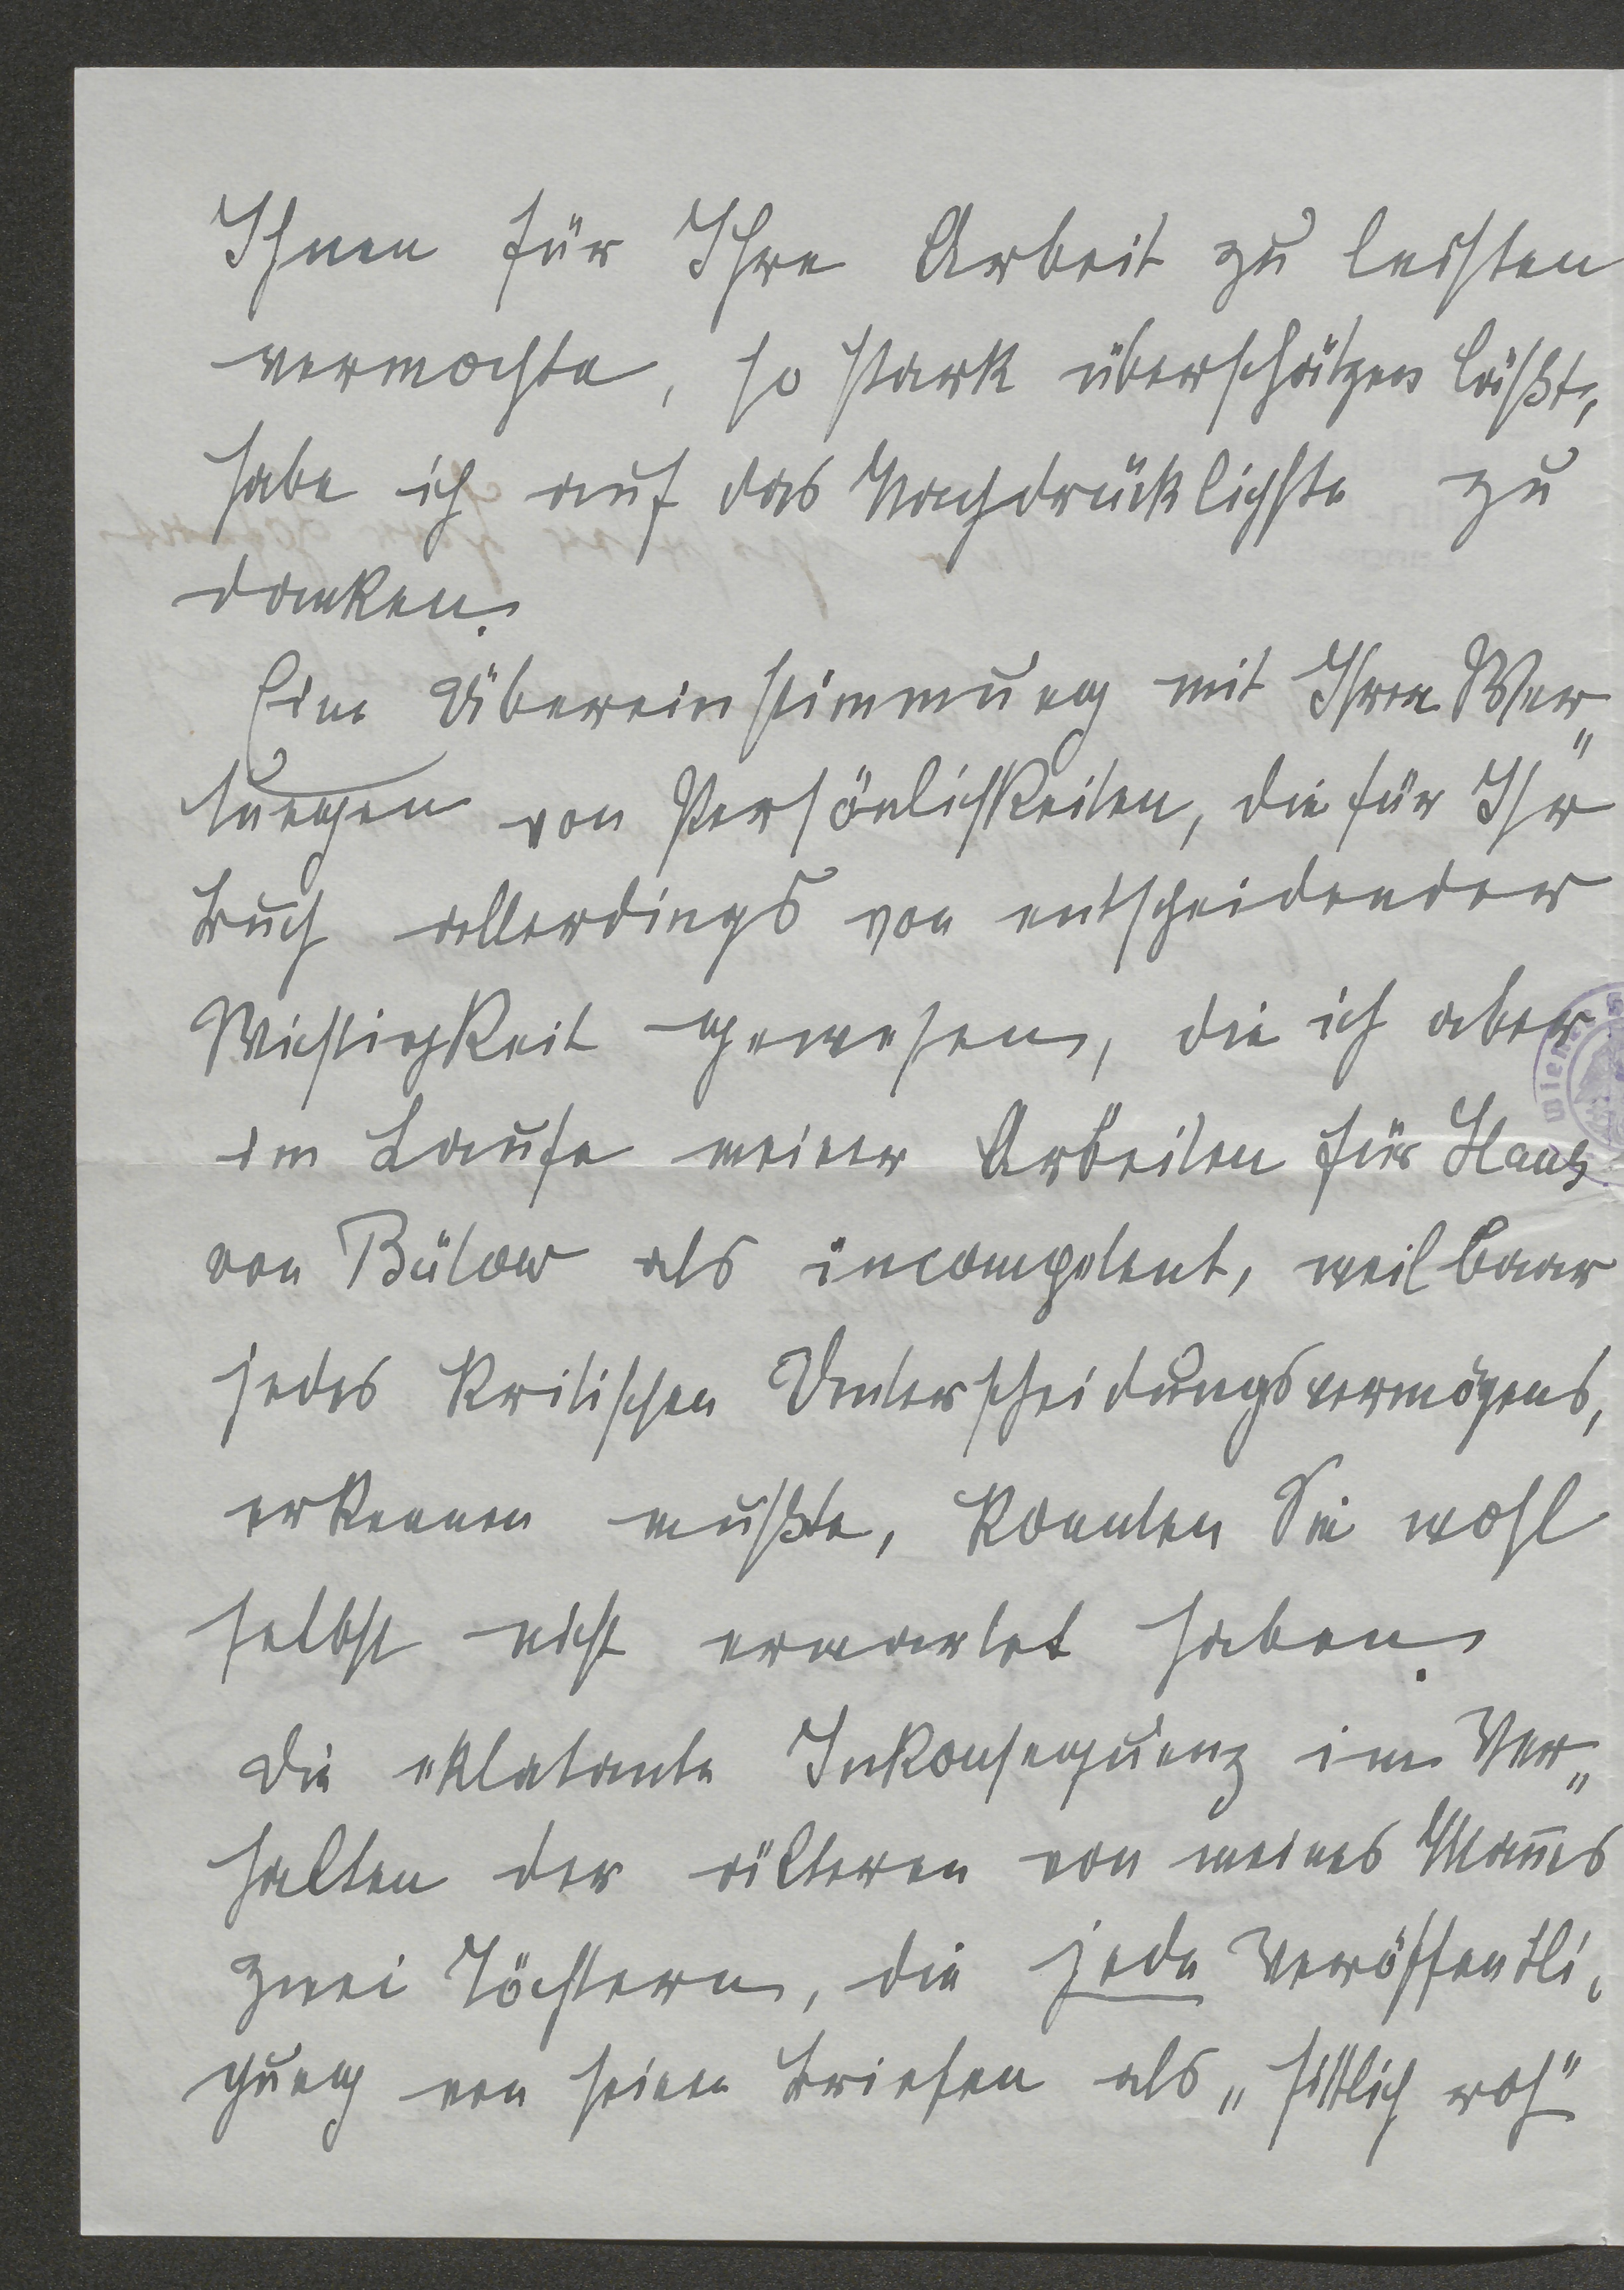 Ihnen für Ihre Arbeit zu leisten
vermochte, so stark überschätzen läßt,
habe ich auf das Nachdrücklichste zu
danken.
Eine Übereinstimmung mit Ihren Wer„
tungen von Persönlichkeiten, die für Ihr
Buch allerdings von entscheidender
Wichtigkeit gewesen, die ich aber
im Laufe meiner Arbeiten für Hans
von Bülow als incompetent, weil baar
jedes kritischen Unterscheidungsvermögens,
erkennen mußte, konnten Sie wohl
selbst nicht erwartet haben.
Die eklatante Inkonsequenz im Ver„
halten der älteren von meines Mannes
zwei Töchtern, die jede Veröffentli„
chung von seinen Briefen als „sittlich roh"